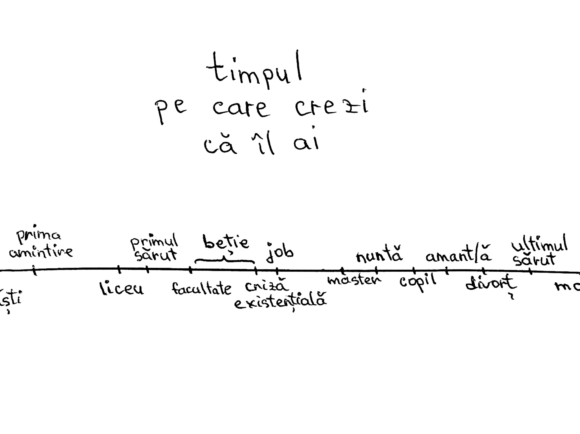 timpul
pe care crezi
că îl ai
prima
amintire
primul
sărut
beție
job
nuntă
amant/ă
ultimul
sărut
liceu
facultate
criză
existențială
master
copil
divorț